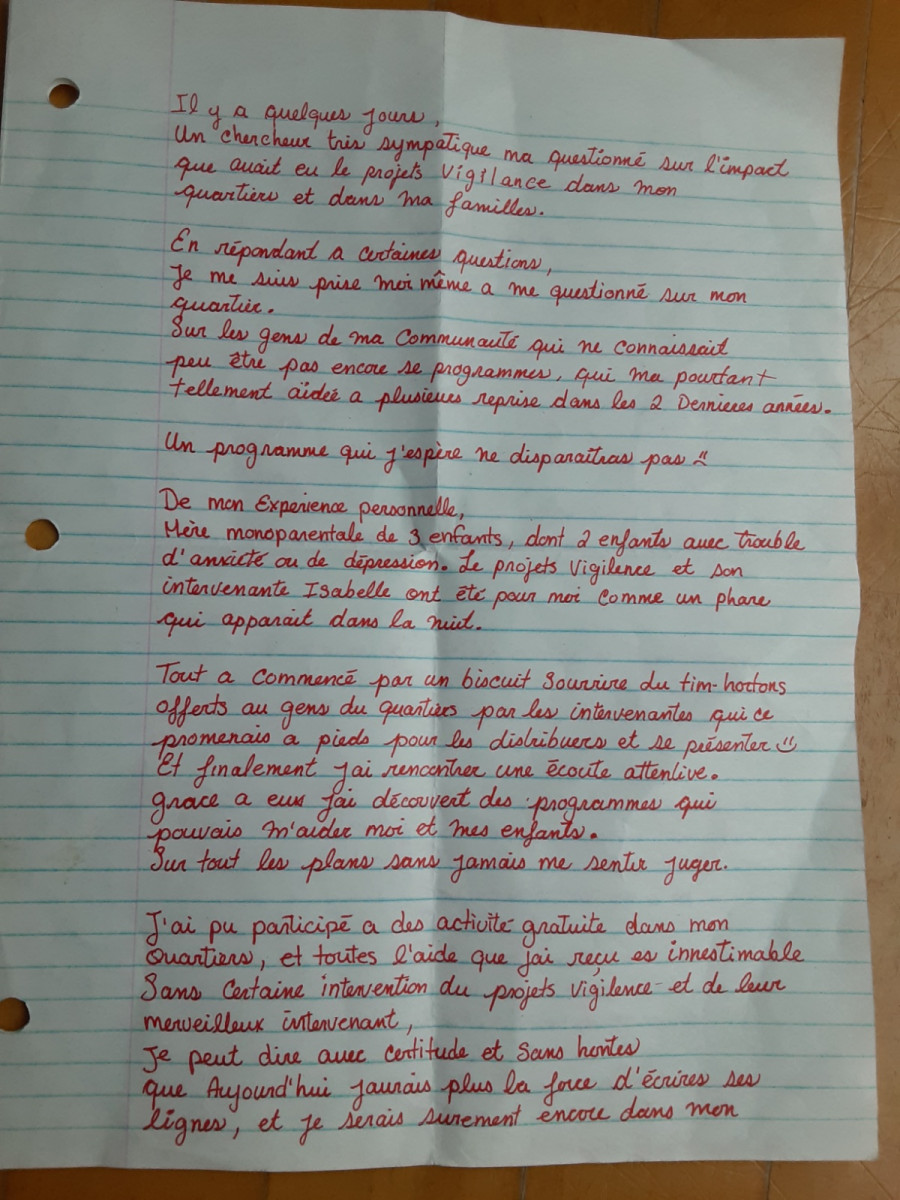 Il y a quelques jours,
Un chercheur très sympatique ma questionné sur l'impact
que avait eu le projets Vigilance dans mon
quartiers et dans ma familles.
En répondant a certaines questions,
Je me suis prise moi même a me questionné sur mon
quartier.
Sur les gens de ma Communauté qui ne connaissait
peu être pas encore se programmes, qui ma pourtant
tellement aïdée a plusieurs reprise dans les 2 Dernieres années.
Un programme qui j'espère ne disparaîtras pas :(
De mon Expérience personnelle,
Mère monoparentale de 3 enfants, dont 2 enfants avec trouble
d'anxiété ou de dépression. Le projets Vigilence et son
intervenante Isabelle ont été pour moi comme un phare
qui apparait dans la nuit.
Tout a commencé par un biscuit Sourrire du tim-hortons
offerts au gens du quartiers par les intervenantes qui ce
promenais a pieds pour les distribuers et se présenter :)
Et finalement jai rencontrer une écoute attentive.
grace a eux jai découvert des programmes qui
pouvais m'aider moi et mes enfants.
Sur tout les plans sans jamais me sentir juger.
J'ai pu participé a des activité gratuite dans mon
Quartiers, et toutes l'aide que jai reçu es innestimable
Sans Certaine intervention du projets Vigilence et de leur
merveilleux intervenant,
Je peut dire avec certitude et Sans hontes
que Aujourd'hui jaurais plus la force d'écrires ses
lignes, et je serais surement encore dans mon